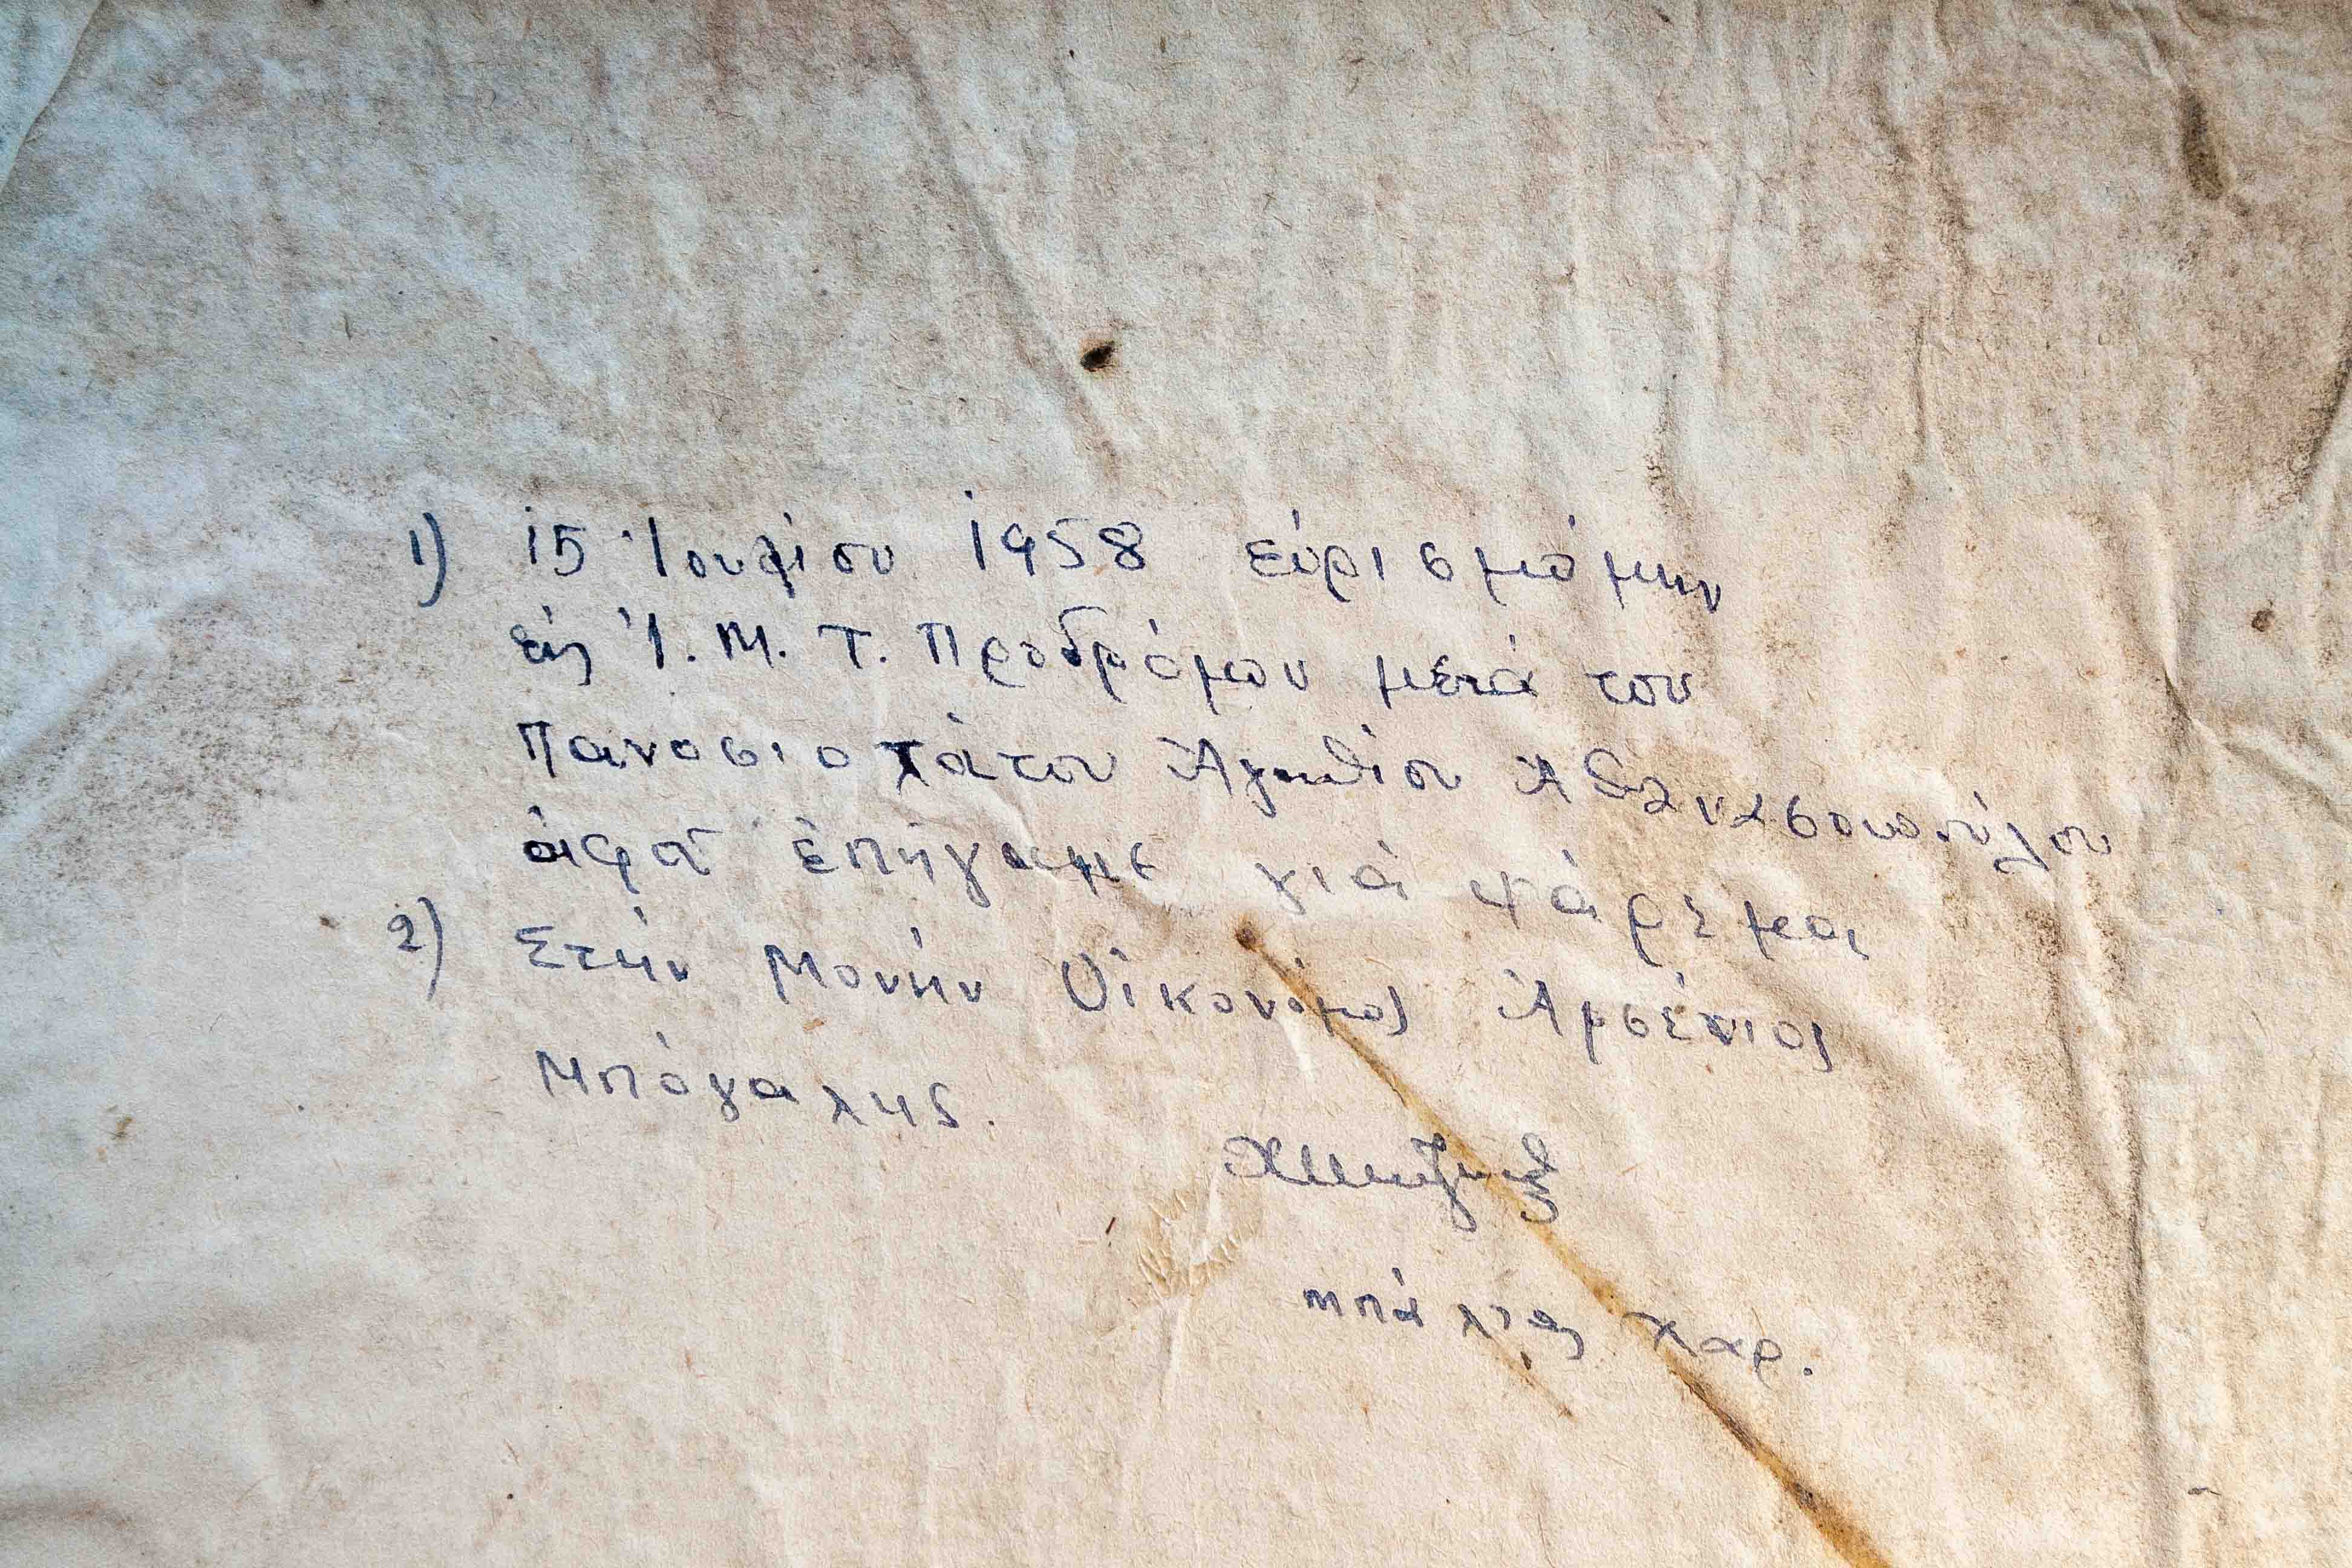 1) 15 Ἰουνίου 1958 εὑρισκόμην
εἰς Ἱ. Μ. Τ. Προδρόμου μετά του
Πανοσιοτάτου Ἀγαθίου Ἀθανασοπούλου
ἀφοῦ ἐπήγαμε γιά ψάρεμα
2) Στήν Μονήν Οἰκονόμος Ἀρσένιος
Μπόγαλης.
Μπάλτας Χαρ.